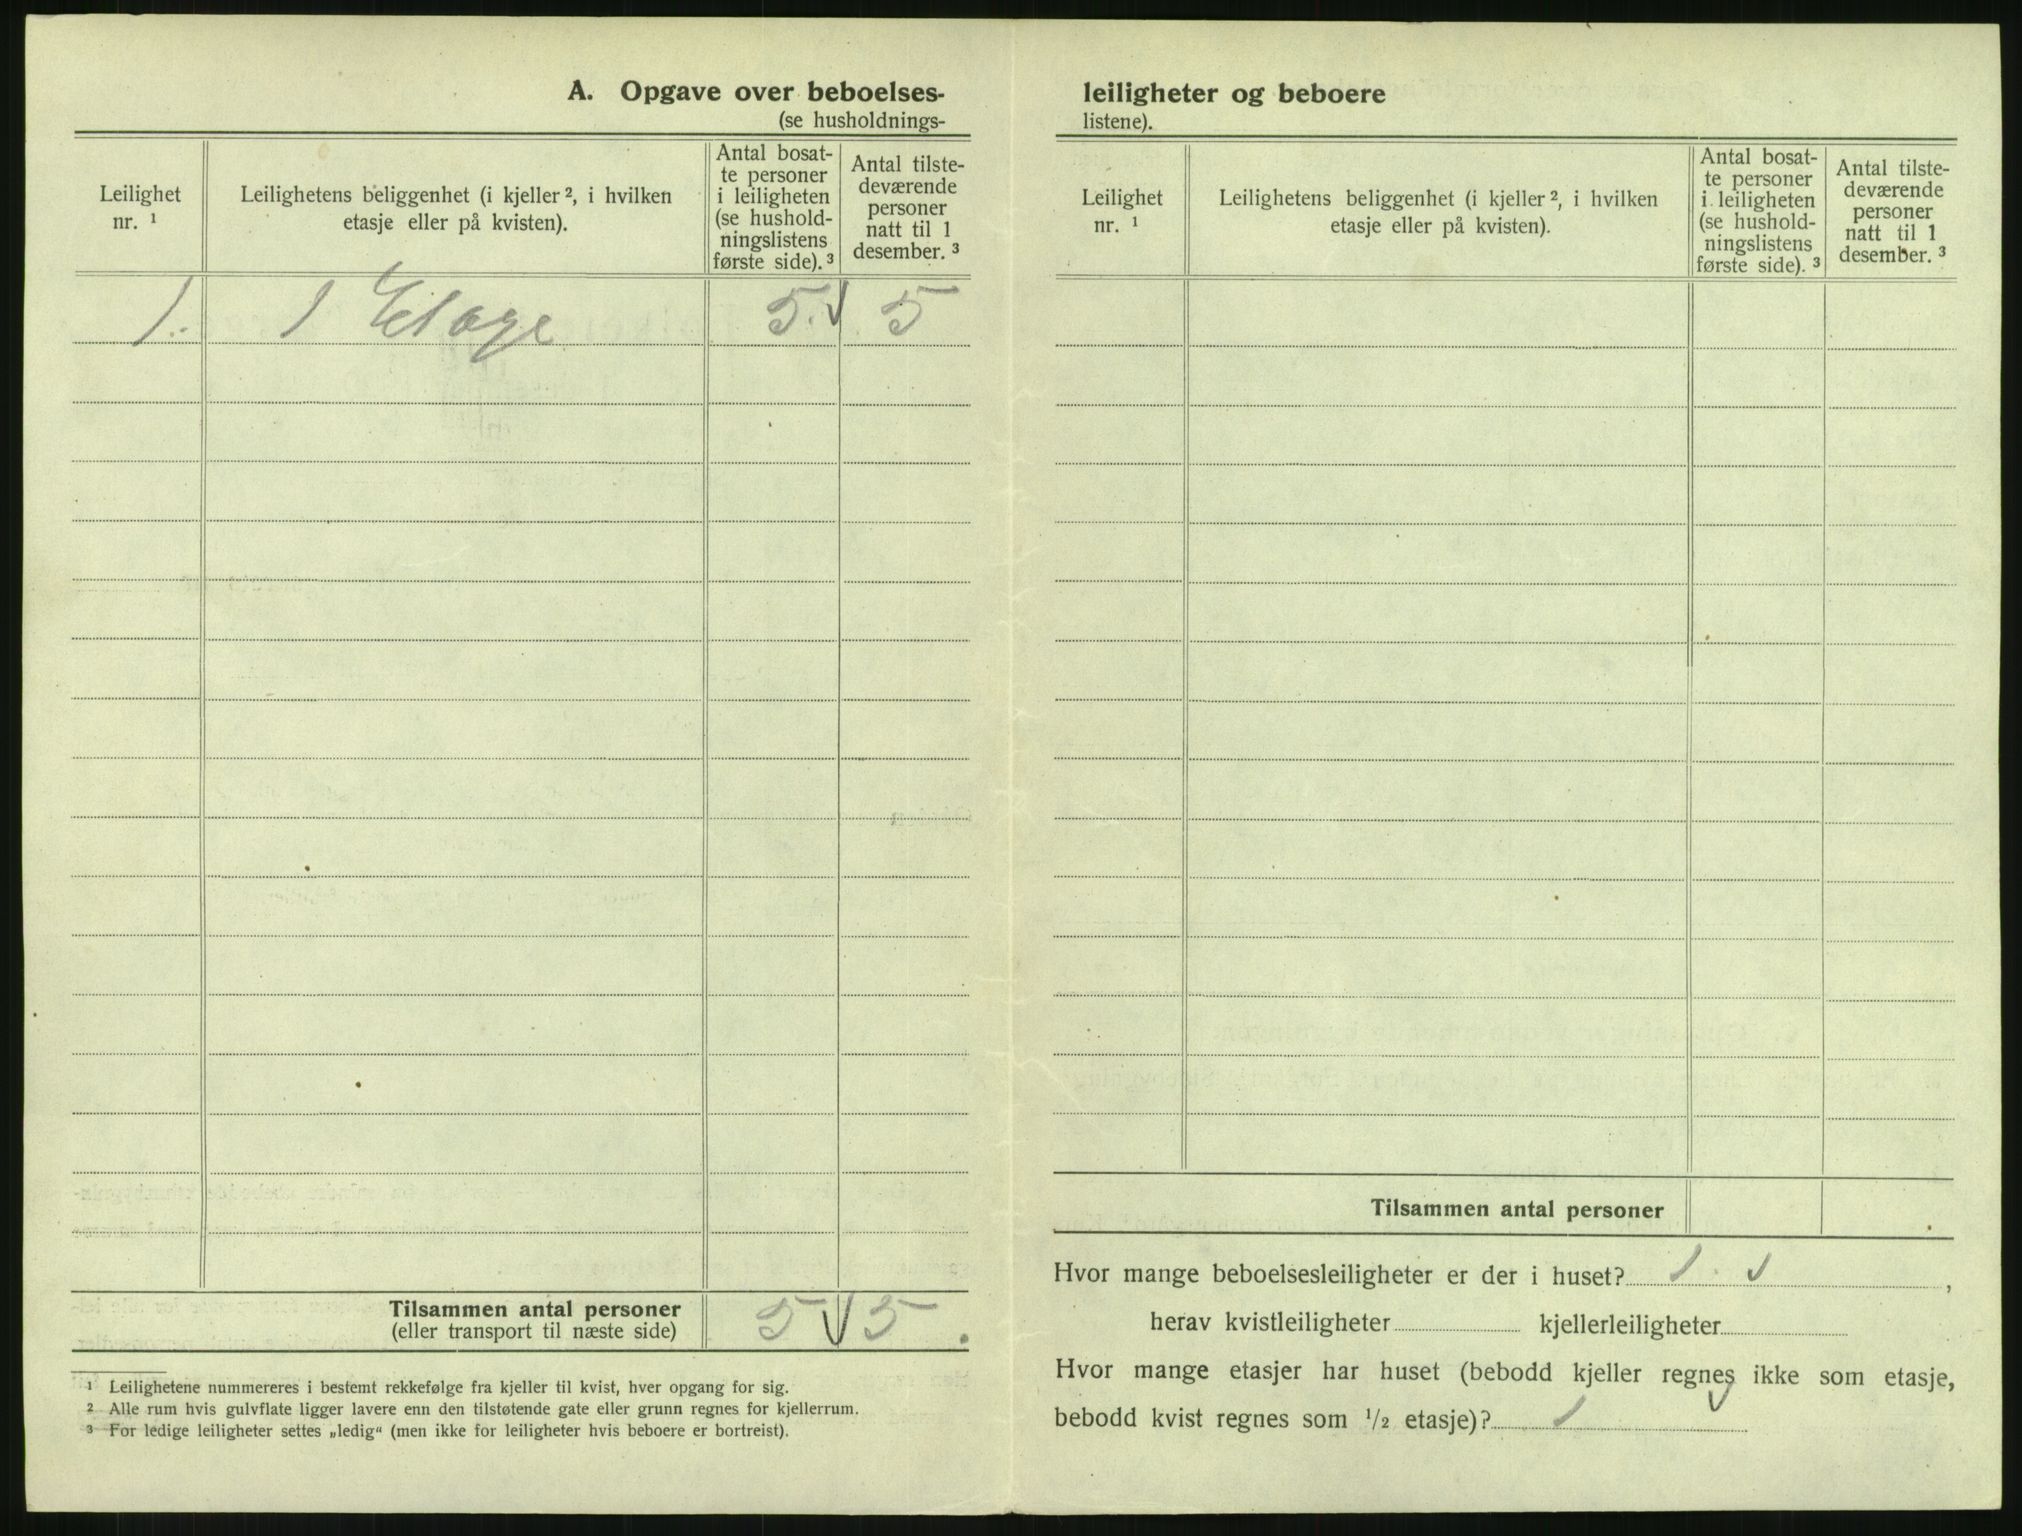 A. Opgave over beboelses-
(se husholdnings-
Leilighet
nr. ¹
Leilighetens beliggenhet (i kjeller ², i hvilken
etasje eller på kvisten).
Antal bosat-
te personer
i leiligheten
(se hushold-
ningslistens
første side). ³
Antal tilste-
deværende
personer
natt til 1
desember. ³
1. 1 Etage 5. √ 5
Tilsammen antal personer
(eller transport til næste side)
5 √ 5.
¹ Leilighetene nummereres i bestemt rekkefølge fra kjeller til kvist, hver opgang for sig.
² Alle rum hvis gulvflate ligger lavere enn den tilstøtende gate eller grunn regnes for kjellerrum.
³ For ledige leiligheter settes „ledig“ (men ikke for leiligheter hvis beboere er bortreist).
leiligheter og beboere
listene).
Leilighet
nr. ¹
Leilighetens beliggenhet (i kjeller ², i hvilken
etasje eller på kvisten).
Antal bosat-
te personer
i leiligheten
(se hushold-
ningslistens
første side). ³
Antal tilste-
deværende
personer
natt til 1
desember. ³
Tilsammen antal personer
Hvor mange beboelsesleiligheter er der i huset? 1. √ ,
herav kvistleiligheter kjellerleiligheter
Hvor mange etasjer har huset (bebodd kjeller regnes ikke som etasje,
bebodd kvist regnes som ½ etasje)? 1 √